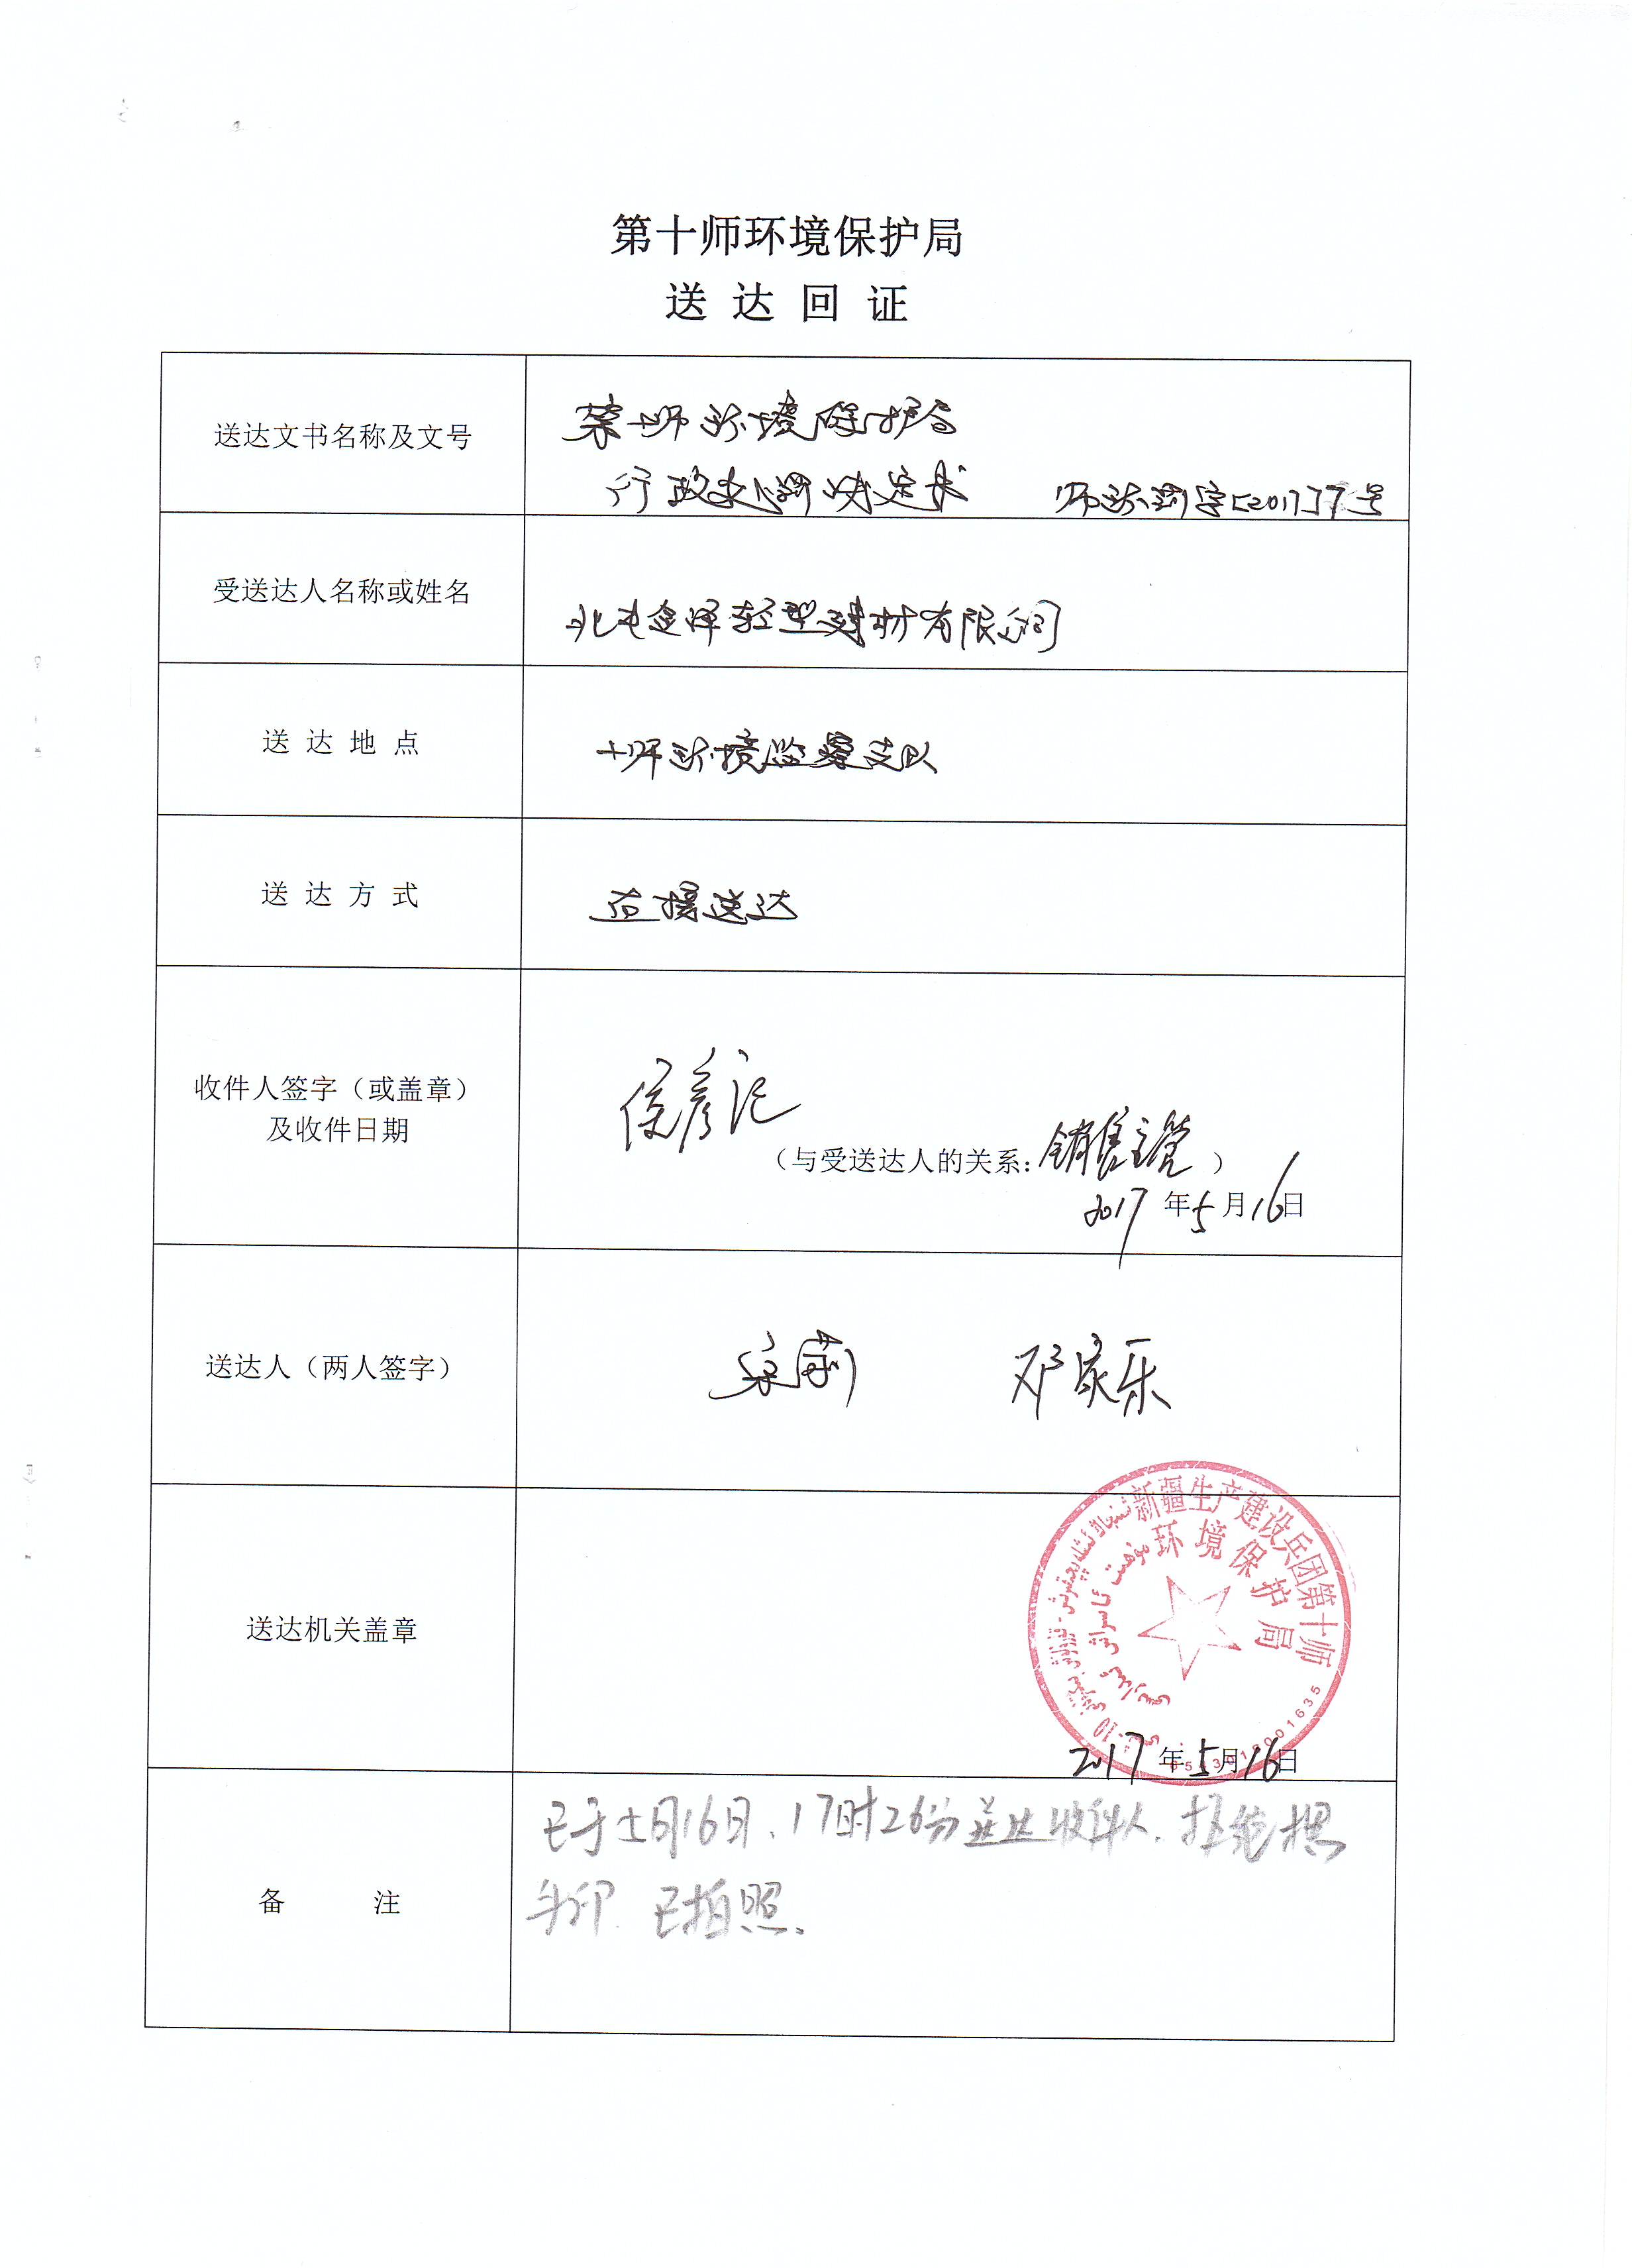 第十师环境保护局
送达回证
送达文书名称及文号
第十师环境保护局
行政处罚决定书 师环罚字[2017]7号
受送达人名称或姓名
北屯 泽轻型建材有限公司
送达地点
十师环境监察支队
送达方式
直接送达
收件人签字（或盖章）
及收件日期
侯彦
（与受送达人的关系：销售主管）
2017年5月16日
送达人（两人签字）
邓家乐
送达机关盖章
新疆生产建设兵团第十师
环境保护局
2017年5月16日
备注
已于5月16日、17时26分送达收件人.拒绝摁
手印.已拍照.